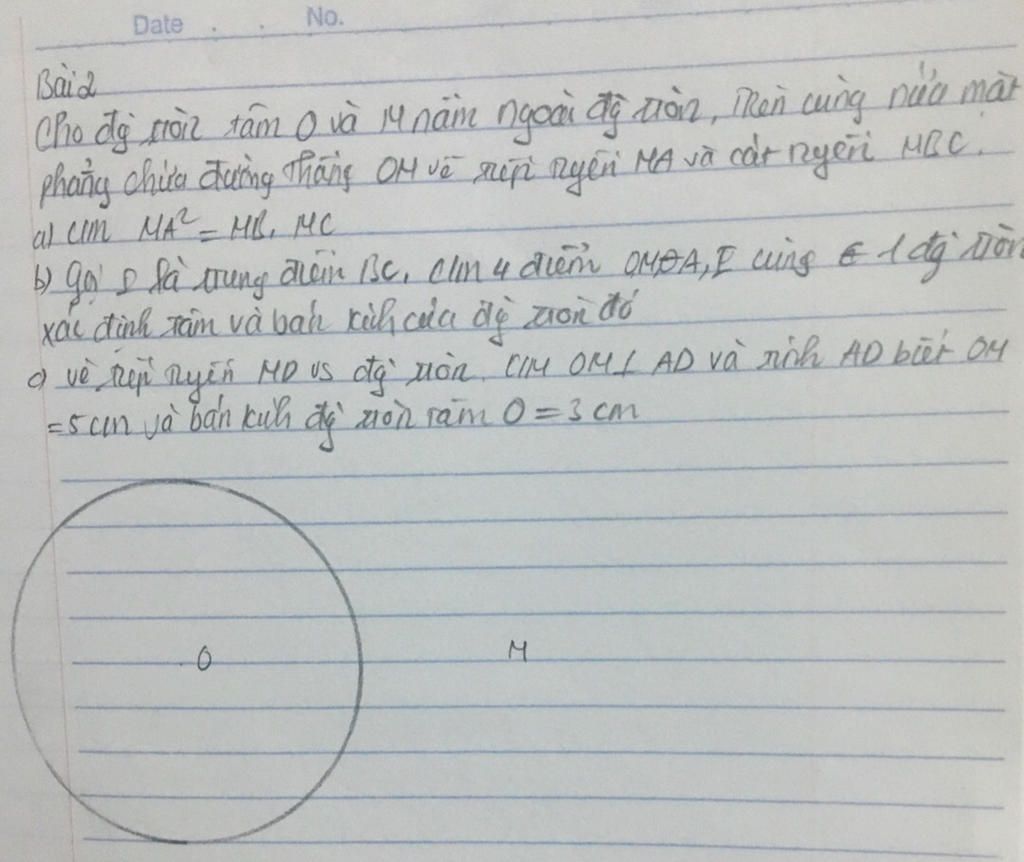 Date . . No.
Bài 2
Cho đg tròn tâm O và M nằm ngoài đg tròn, Trên cùng nửa mặt
phẳng chứa đường thẳng OM vẽ tiếp tuyến MA và cát tuyến MBC.
a) cm MA² = MB. MC
b) gọi I là trung điểm BC, cm 4 điểm OM A, I cùng ∈ 1 đg tròn
xác định tâm và bán kính của đg tròn đó
c) vẽ tiếp tuyến MD vs đg tròn. CM OM ⊥ AD và tính AD biết OM
= 5 cm và bán kính đg tròn tâm O = 3 cm
O M